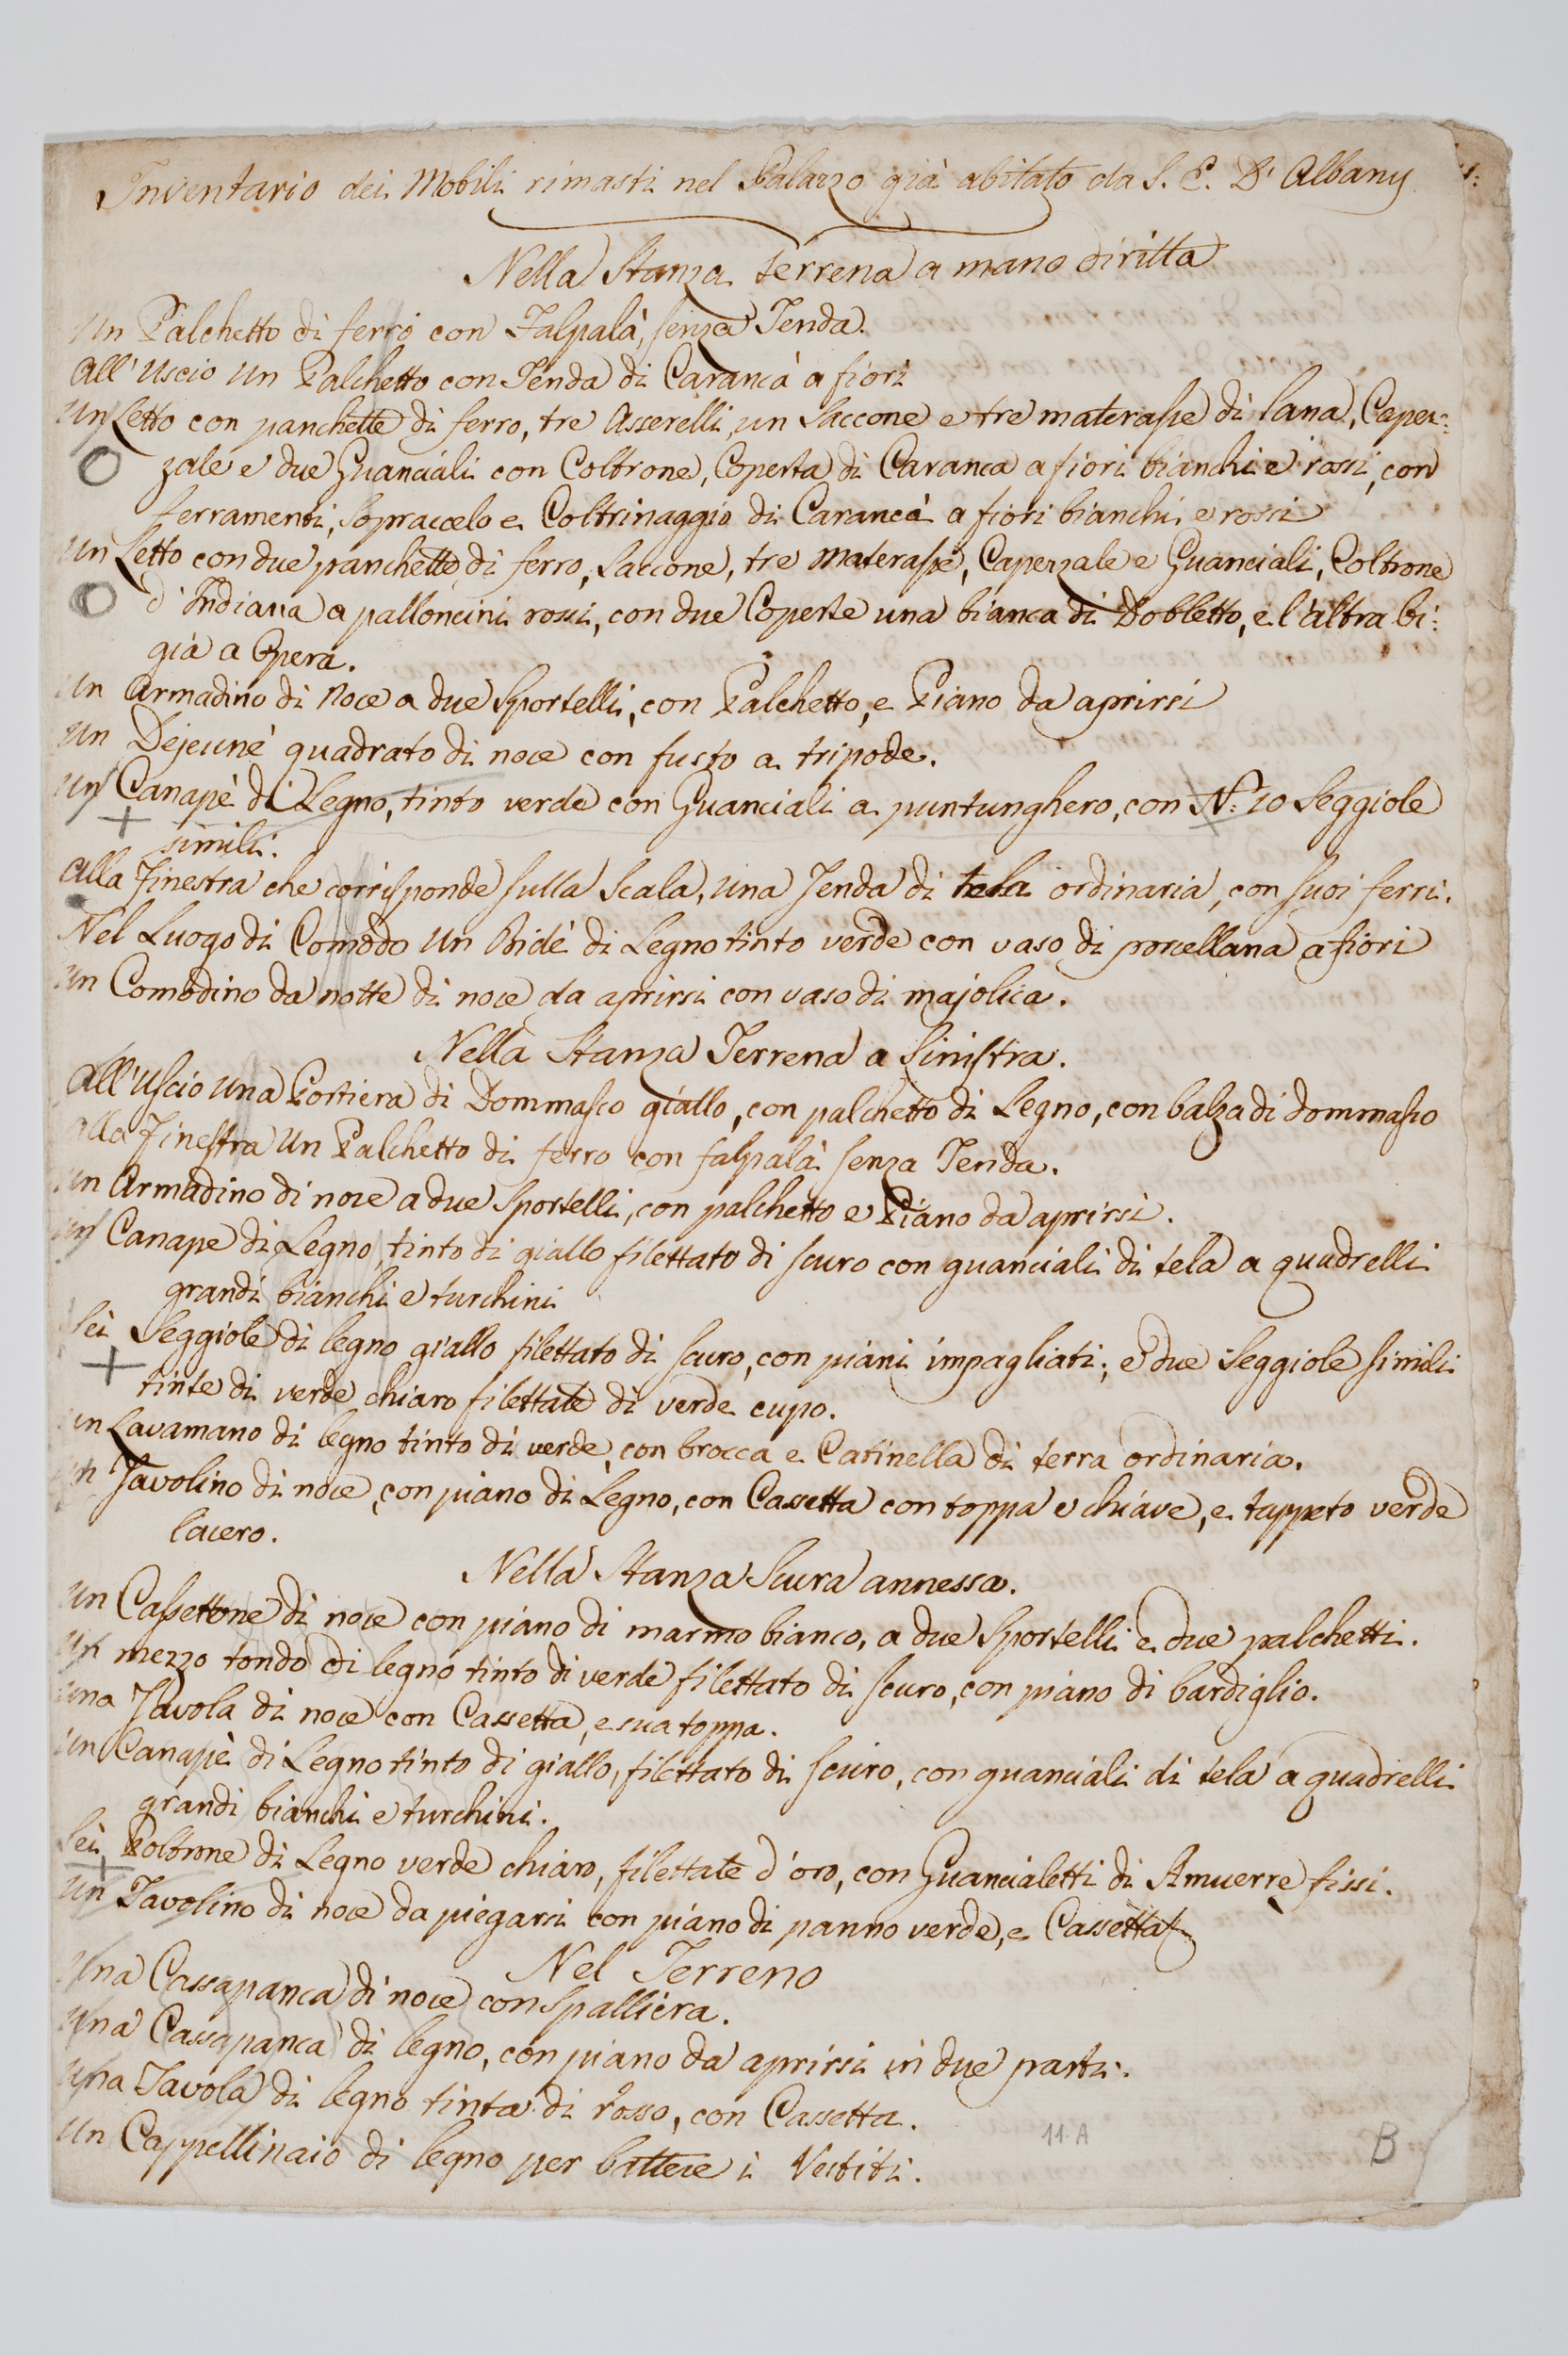 Inventario dei Mobili rimasti nel Palazzo già abitato da S. E. D'Albany
Nella Stanza terrena a mano diritta
Un Palchetto di ferro con Falpalà, senza Tenda.
All'Uscio un Palchetto con Tenda di Carancà a fiori
Un Letto con panchette di ferro, tre Asserelli, un Saccone e tre materasse di lana, Caper:
zale e due Guanciali con Coltrone, Coperta di Caranca a fiori bianchi e rossi, con
ferramenti, Sopracielo e Coltrinaggio di Carancà a fiori bianchi e rossi
Un Letto con due panchette di ferro, Saccone, tre materasse, Caperzale e Guanciali, Coltrone
d'Indiana a palloncini rossi, con due Coperte una bianca di Dobletto, e l'altra bi:
gia a Opera.
Un Armadino di Noce a due Sportelli, con Palchetto, e Piano da aprirsi
Un Dejeunè quadrato di noce con fusto a tripode.
Un Canapè di Legno, tinto verde con Guanciali a puntunghero, con N.º 10 Seggiole
simili.
Alla Finestra che corrisponde sulla Scala, una Tenda di tela ordinaria, con suoi ferri.
Nel Luogo di Comodo un Bidè di Legno tinto verde con vaso di porcellana a fiori
Un Comodino da notte di noce da aprirsi con vaso di majolica.
Nella Stanza Terrena a Sinistra.
All'uscio una Portiera di Dommasco giallo, con palchetto di Legno, con balza di dommasco
Alla Finestra un Palchetto di ferro con falpalà senza Tenda.
Un Armadino di noce a due Sportelli, con palchetto e Piano da aprirsi.
Un Canape di Legno, tinto di giallo filettato di scuro con guanciali di tela a quadrelli
grandi bianchi e turchini
Sei Seggiole di legno giallo filettato di scuro, con piani impagliati; e due Seggiole simili
tinte di verde chiaro filettate di verde cupo.
Un Lavamano di legno tinto di verde, con brocca e Catinella di terra ordinaria.
Un Tavolino di noce, con piano di Legno, con Cassetta con toppa e chiave, e tappeto verde
lacero.
Nella Stanza Scura annessa.
Un Cassettone di noce con piano di marmo bianco, a due Sportelli e due palchetti.
Un mezzo tondo di legno tinto di verde filettato di scuro, con piano di bardiglio.
Una Tavola di noce con Cassetta, e sua toppa.
Un Canapè di Legno tinto di giallo, filettato di scuro, con guanciali di tela a quadrelli
grandi bianchi e turchini.
Sei Poltrone di Legno verde chiaro, filettate d'oro, con Guancialetti di Amuerre fissi.
Un Tavolino di noce da piegarsi con piano di panno verde, e Cassetta
Nel Terreno
Una Cassapanca di noce con Spalliera.
Una Cassapanca di legno, con piano da aprirsi in due parti.
Una Tavola di legno tinta di rosso, con Cassetta.
Un Cappellinaio di legno per battere i Vestiti.
11.A
B